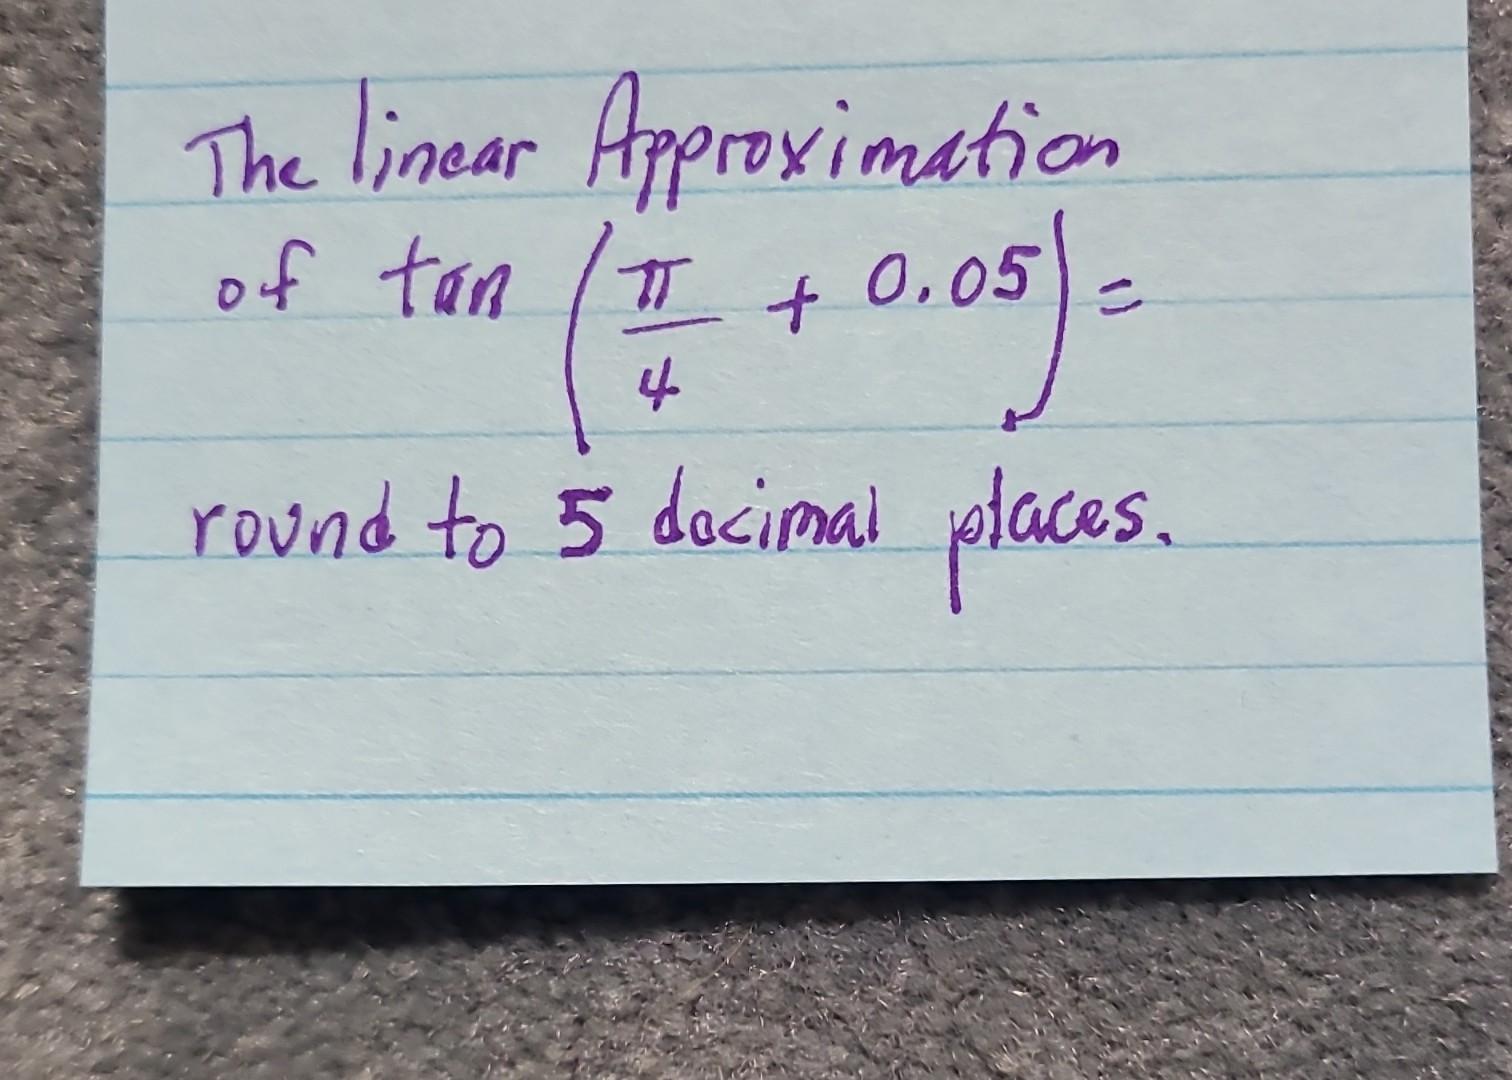 The linear Approximation
of tan (π/4 + 0.05) =
round to 5 decimal places.